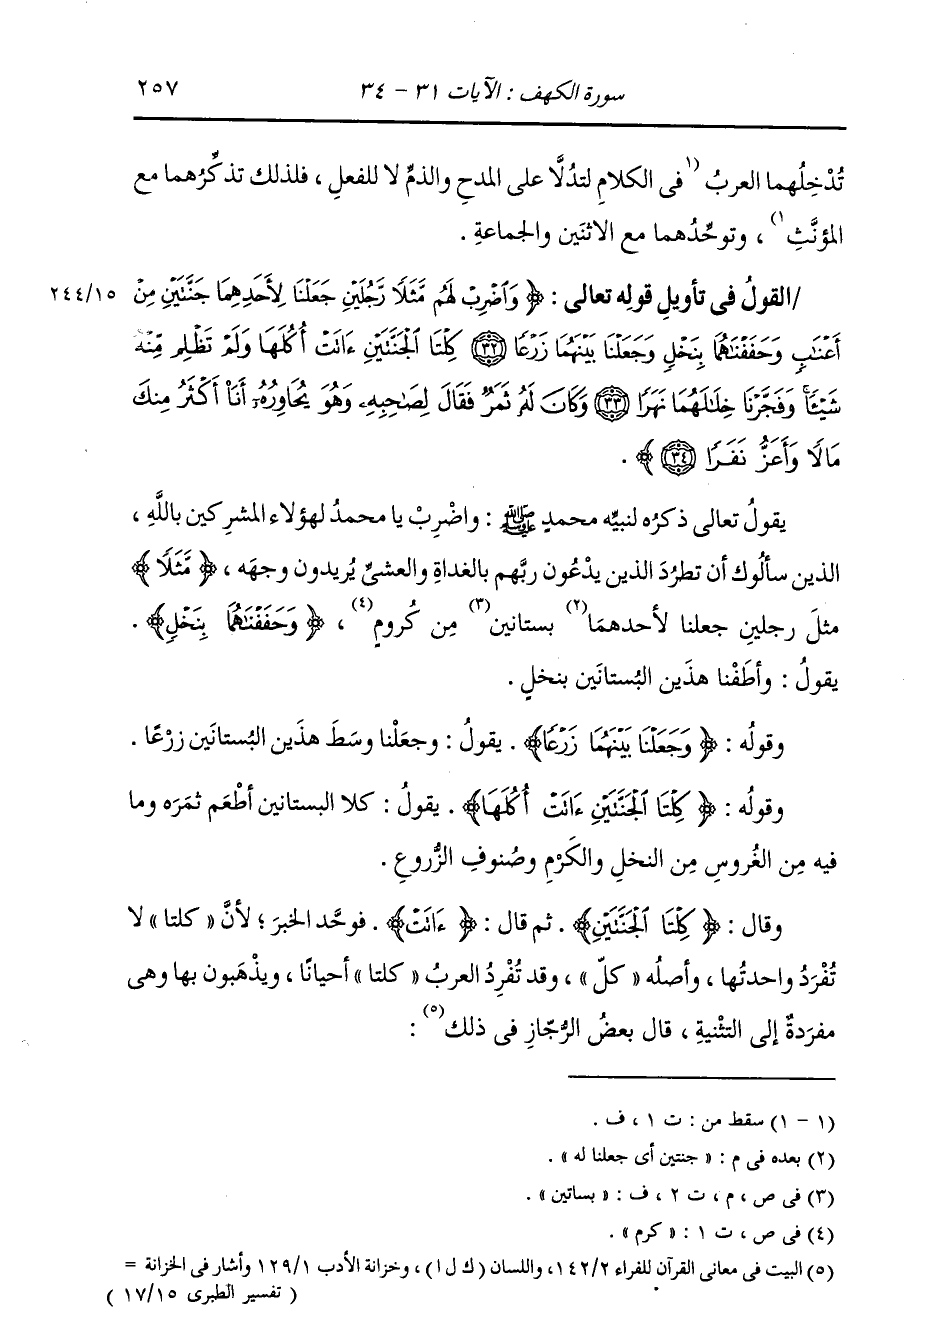 سورة الكهف : الآيات ٣١ - ٣٤ ٢٥٧
تُدْخِلُهما العربُ (١ فى الكلامِ لتدُلَّا على المدحِ والذمِّ لا للفعلِ ، فلذلك تذكِّرُهما مع
المؤنَّثِ ١) ، وتوحِّدُهما مع الاثنَين والجماعةِ .
/القولُ فى تأويلِ قولِه تعالى : ﴿ وَٱضْرِبْ لَهُم مَّثَلًا رَّجُلَيْنِ جَعَلْنَا لِأَحَدِهِمَا جَنَّتَيْنِ مِنْ ٢٤٤/١٥
أَعْنَٰبٍ وَحَفَفْنَٰهُمَا بِنَخْلٍ وَجَعَلْنَا بَيْنَهُمَا زَرْعًا ﴿٣٢﴾ كِلْتَا ٱلْجَنَّتَيْنِ ءَاتَتْ أُكُلَهَا وَلَمْ تَظْلِم مِّنْهُ
شَيْـًٔا ۚ وَفَجَّرْنَا خِلَٰلَهُمَا نَهَرًا ﴿٣٣﴾ وَكَانَ لَهُۥ ثَمَرٌ فَقَالَ لِصَٰحِبِهِۦ وَهُوَ يُحَاوِرُهُۥٓ أَنَا۠ أَكْثَرُ مِنكَ
مَالًا وَأَعَزُّ نَفَرًا ﴿٣٤﴾ ﴾ .
يقولُ تعالى ذكرُه لنبيِّه محمدٍ ﷺ : واضْرِبْ يا محمدُ لهؤلاء المشرِكين باللَّهِ ،
الذين سألُوك أن تطرُدَ الذين يدْعُون ربَّهم بالغداةِ والعشىِّ يُريدون وجهَه ، ﴿ مَّثَلًا ﴾
مثلَ رجلينِ جعلنا لأحدهمَا (٢) بستانين (٣) مِن كُرومٍ (٤) ، ﴿ وَحَفَفْنَٰهُمَا بِنَخْلٍ﴾ .
يقولُ : وأطَفْنا هذَين البُستانَين بنخلٍ .
وقولُه : ﴿ وَجَعَلْنَا بَيْنَهُمَا زَرْعًا﴾ . يقولُ : وجعَلْنا وسَطَ هذَين البُستانَين زرْعًا .
وقولُه : ﴿ كِلْتَا ٱلْجَنَّتَيْنِ ءَاتَتْ أُكُلَهَا﴾ . يقولُ : كلا البستانين أطْعَم ثمَرَه وما
فيه مِن الغُروسِ مِن النخلِ والكَرْمِ وصُنوفِ الزُّروعِ .
وقال : ﴿ كِلْتَا ٱلْجَنَّتَيْنِ﴾ . ثم قال : ﴿ ءَاتَتْ﴾ . فوحَّد الخبرَ ؛ لأنَّ « كلتا » لا
تُفْرَدُ واحدتُها ، وأصلُه « كلّ » ، وقد تُفْرِدُ العربُ « كلتا » أحيانًا ، ويذْهَبون بها وهى
مفرَدةٌ إلى التثْنيةِ ، قال بعضُ الرُّجّازِ فى ذلك (٥) :
(١ - ١) سقط من : ت ١ ، ف .
(٢) بعده فى م : « جنتين أى جعلنا له » .
(٣) فى ص ، م ، ت ٢ ، ف : « بساتين » .
(٤) فى ص ، ت ١ : « كرم » .
(٥) البيت فى معانى القرآن للفراء ١٤٢/٢، واللسان (ك ل ا) ، وخزانة الأدب ١٢٩/١ وأشار فى الخزانة =
( تفسير الطبرى ١٧/١٥ )